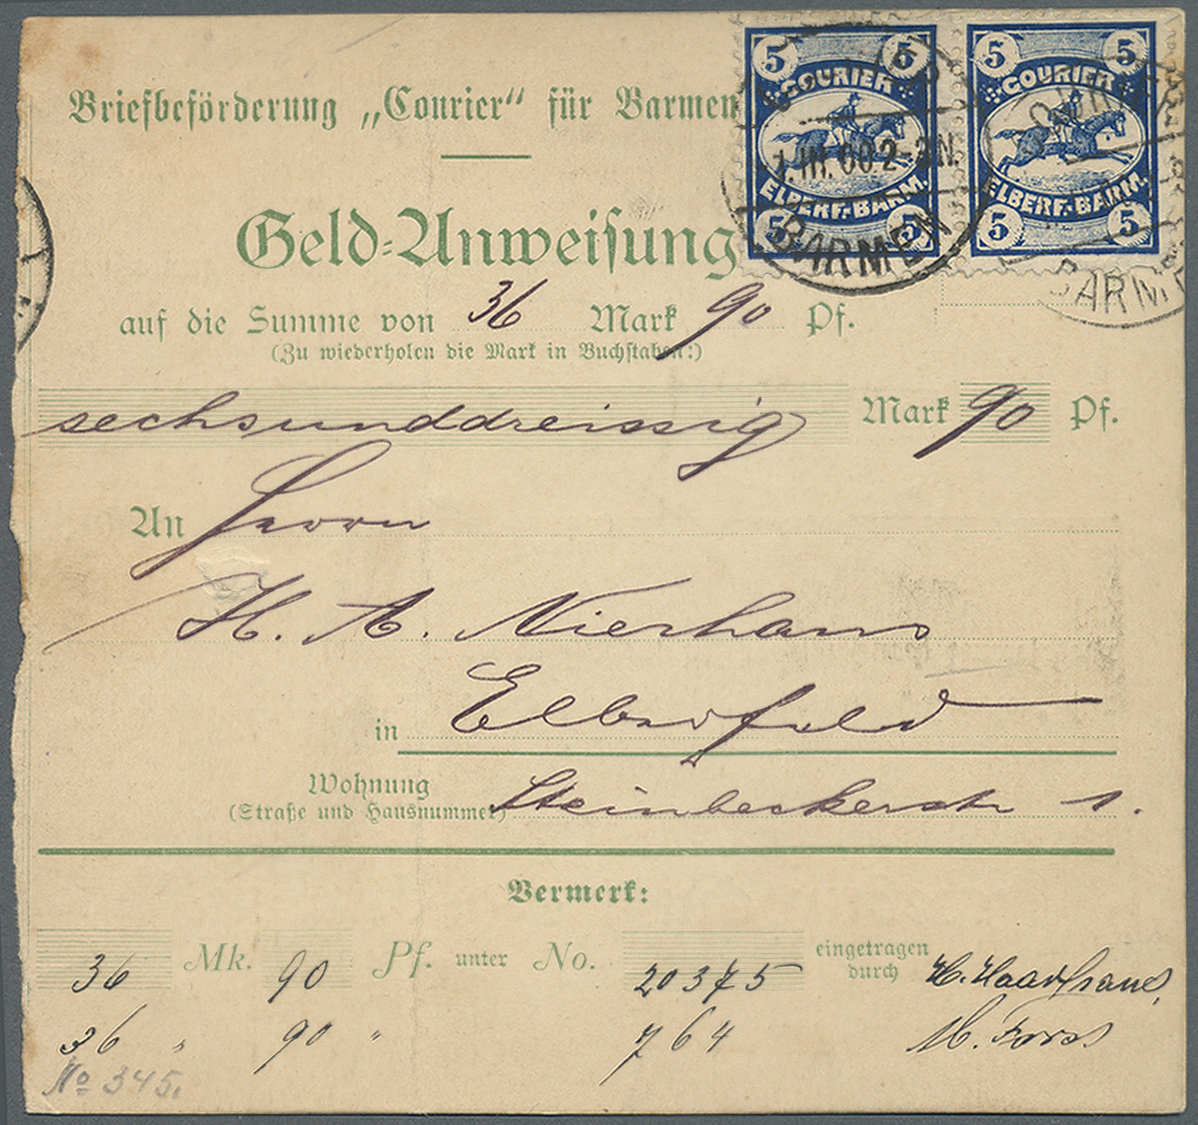 Briefbeförderung „Courier“ für Barmen
5 5
COURIER
ELBERF.-BARM.
5 5
5 5
COURIER
ELBERF.-BARM.
5 5
1.III.00 2-3N.
BARMEN
BARM
Geld-Anweisung
auf die Summe von 36 Mark 90 Pf.
(Zu wiederholen die Mark in Buchstaben:)
sechsunddreissig Mark 90 Pf.
An Herrn
H. A. Nierhaus
in Elberfeld
Wohnung
(Straße und Hausnummer) Steinbeckerstr 1.
Vermerk:
36 Mk. 90 Pf. unter No. 20375 eingetragen durch H.
36 " 90 " 764
No 345.